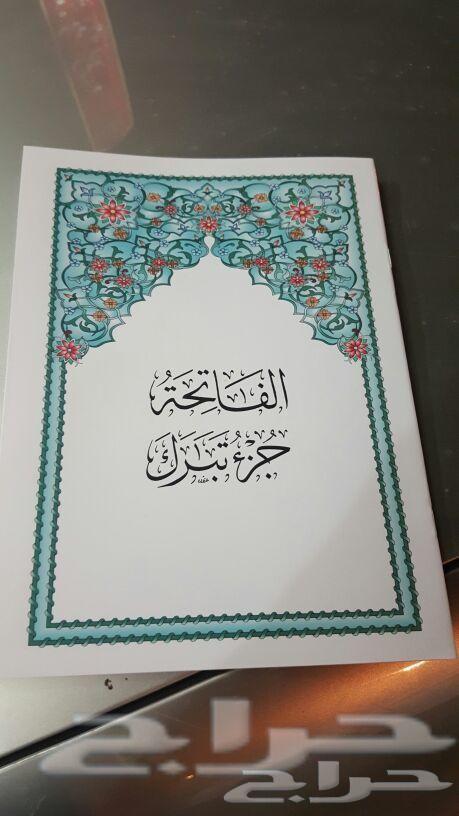 الفَاتِحَةُ
جُزْءُ تَبَٰرَكَ
حراج
حراج